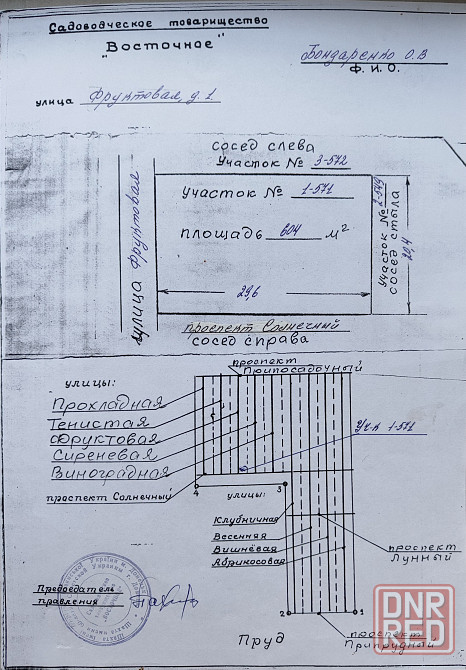 Садоводческое товарищество
"Восточное"
Бондаренко О.В
Ф. И. О.
улица Фруктовая, д. 1
сосед слева
Участок № 3-572
улица Фруктовая
участок № 1-571
площадь 604 м2
Участок № 2-549
сосед с тыла
20,4
29,6
проспект Солнечный
сосед справа
проспект
Припосадочный
улицы:
Прохладная
Тенистая
Фруктовая
Сиреневая
Виноградная
Уч.к 1-571
проспект Солнечный
4
3
улицы:
Клубничная
Весенняя
Вишнёвая
Абрикосовая
проспект
Лунный
Председатель
правления
2
1
Пруд
проспект
Припрудный
DNR
RED